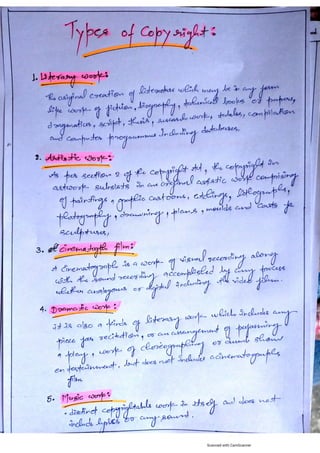 Types of Copyright:
1. Literary work:
The original creation of literature which may be in any form
like work of fiction, biography, technical books or papers,
dramatics, script, thesis, research work, tables, compilation
and computer programme including databases.
2. Artistic work:
As per section 2 of the copyright Act, the copyright in
artwork subsists in an original artistic work comprising
of paintings, graphic cartoons, etchings, lithographs,
photography, drawing, plans, moulds and casts for
sculptures.
3. Cinematograph film:
A Cinematograph is a work of visual recording along
with the sound recording accomplished by any process
whether analogous or digital including the video film.
4. Dramatic work:
it is also a kinds of literary work which includes any
piece for recitation, or an arrangement of performing
a play, work of choreographing or dumb show
entertainment. but does not include a cinematographic
film
5. Music work:
distinct copyrightable work in itself and does not
include lyrics or any sound.
Scanned with CamScanner